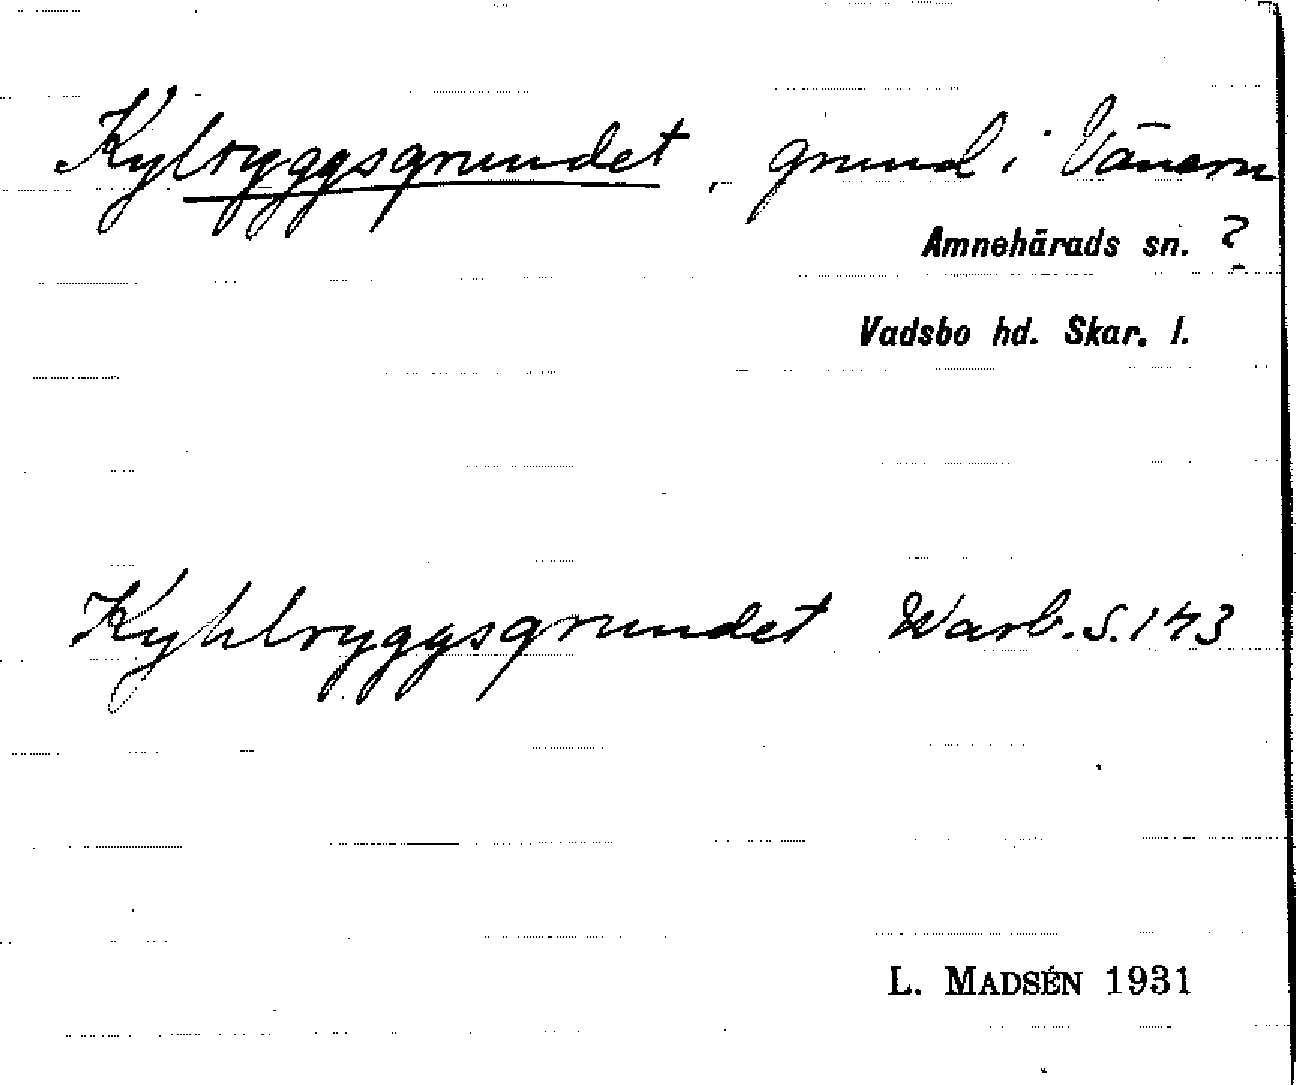 Kylryggsgrundet, grund i Vänern
Amnehärads sn. ?
Vadsbo hd. Skar. l.
Kyhlryggsgrundet Warb. S. 143
L. MADSÉN 1931